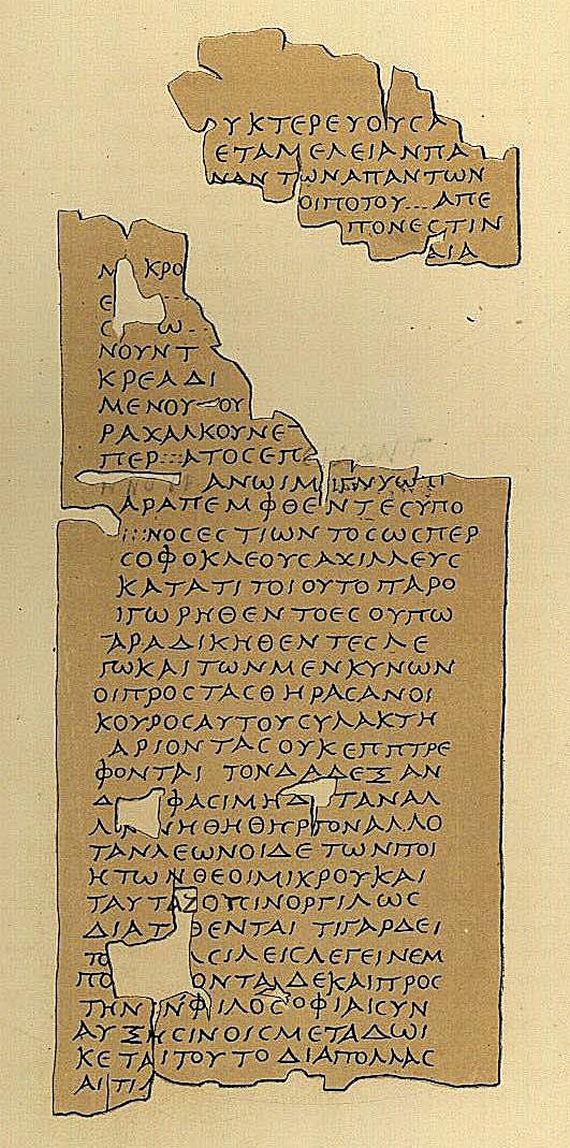 ΡΥΚΤΕΡΕΥΟΥϹΑ
ΕΤΑΜΕΛΕΙΑΝΠΑ
ΝΑΝΤΩΝΑΠΑΝΤΩΝ
ΟΙΠΟΤΟΥ...ΑΠΕ
ΠΟΝΕϹΤΙΝ
ΑΙΑ
Μ ΚΡΟ
Ε
Ϲ Ω
ΝΟΥΝΤ
ΚΡΕΑΔΙ
ΜΕΝΟΥ ΟΥ
ΡΑΧΑΛΚΟΥΝΕΤ
ΠΕΡ ΑΤΟϹΕΠ
ΑΝΩΙΜ
ΑΡΑΠΕΜΦΘΕΝΤΕϹΥΠΟ
ΝΟϹΕϹΤΙΩΝΤΟϹΩϹΠΕΡ
ϹΟΦΟΚΛΕΟΥϹΑΧΙΛΛΕΥϹ
ΚΑΤΑΤΙΤΟΙΟΥΤΟΠΑΡΟ
ΙΓΩΡΗΘΕΝΤΟΕϹΟΥΠΩ
ΤΑΡΑΔΙΚΗΘΕΝΤΕϹΛΕ
ΓΩΚΑΙΤΩΝΜΕΝΚΥΝΩΝ
ΟΙΠΡΟϹΤΑϹΘΗΡΑϹΑΝΟΙ
ΚΟΥΡΟϹΑΥΤΟΥϹΥΛΑΚΤΗ
ΑΡΙΟΝΤΑϹΟΥΚΕΠΠΤΡΕ
ΦΟΝΤΑΙ ΤΟΝΔΑΔΕΞΑΝ
Δ ΦΑϹΙΜΗΔ ΤΑΝΑΛ
ΛΩΝΝΗΘΗΘΗΡΙΟΝΑΛΛΟ
ΤΑΝΛΕΩΝΟΙΔΕΤΩΝΠΟΙ
ΗΤΩΝΘΕΟΙΜΙΚΡΟΥΚΑΙ
ΤΑΥΤΑΖΟΥϹΙΝΟΡΓΙΛΩϹ
ΔΙΑΤ ΘΕΝΤΑΙ ΤΙΓΑΡΔΕΙ
ΤΟ ΛϹΙΛΕΙϹΛΕΓΕΙΝΕΜ
ΠΟ ΟΝΤΑΙΔΕΚΑΙΠΡΟϹ
ΤΗΝ ΝΦΙΛΟϹΟΦΙΑΙϹΥΝ
ΑΥΞΗϹΙΝΟΙϹΜΕΤΑΔΩΙ
ΚΕΤΑΙΤΟΥΤΟΔΙΑΠΟΛΛΑϹ
ΑΙΤΙΑ